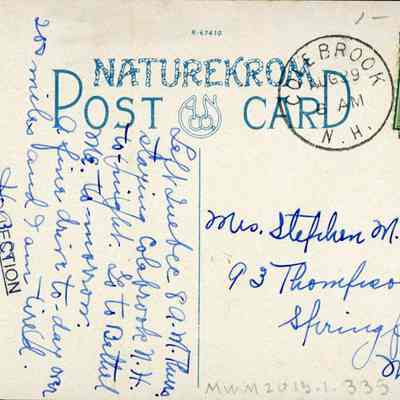 R-67410
NATUREKROM
POST CARD
COLEBROOK
AUG 9
AM
N.H.
Left Quebec 8 A.M. Thurs.
staying Colebrook N.H.
to-night. Go to Bethel
Me. to-morrow.
A fine drive to-day over
200 miles and I am tired.
ECTION
Mrs. Stephen M.
93 Thompso
Springf
M
MWM2013.1.335